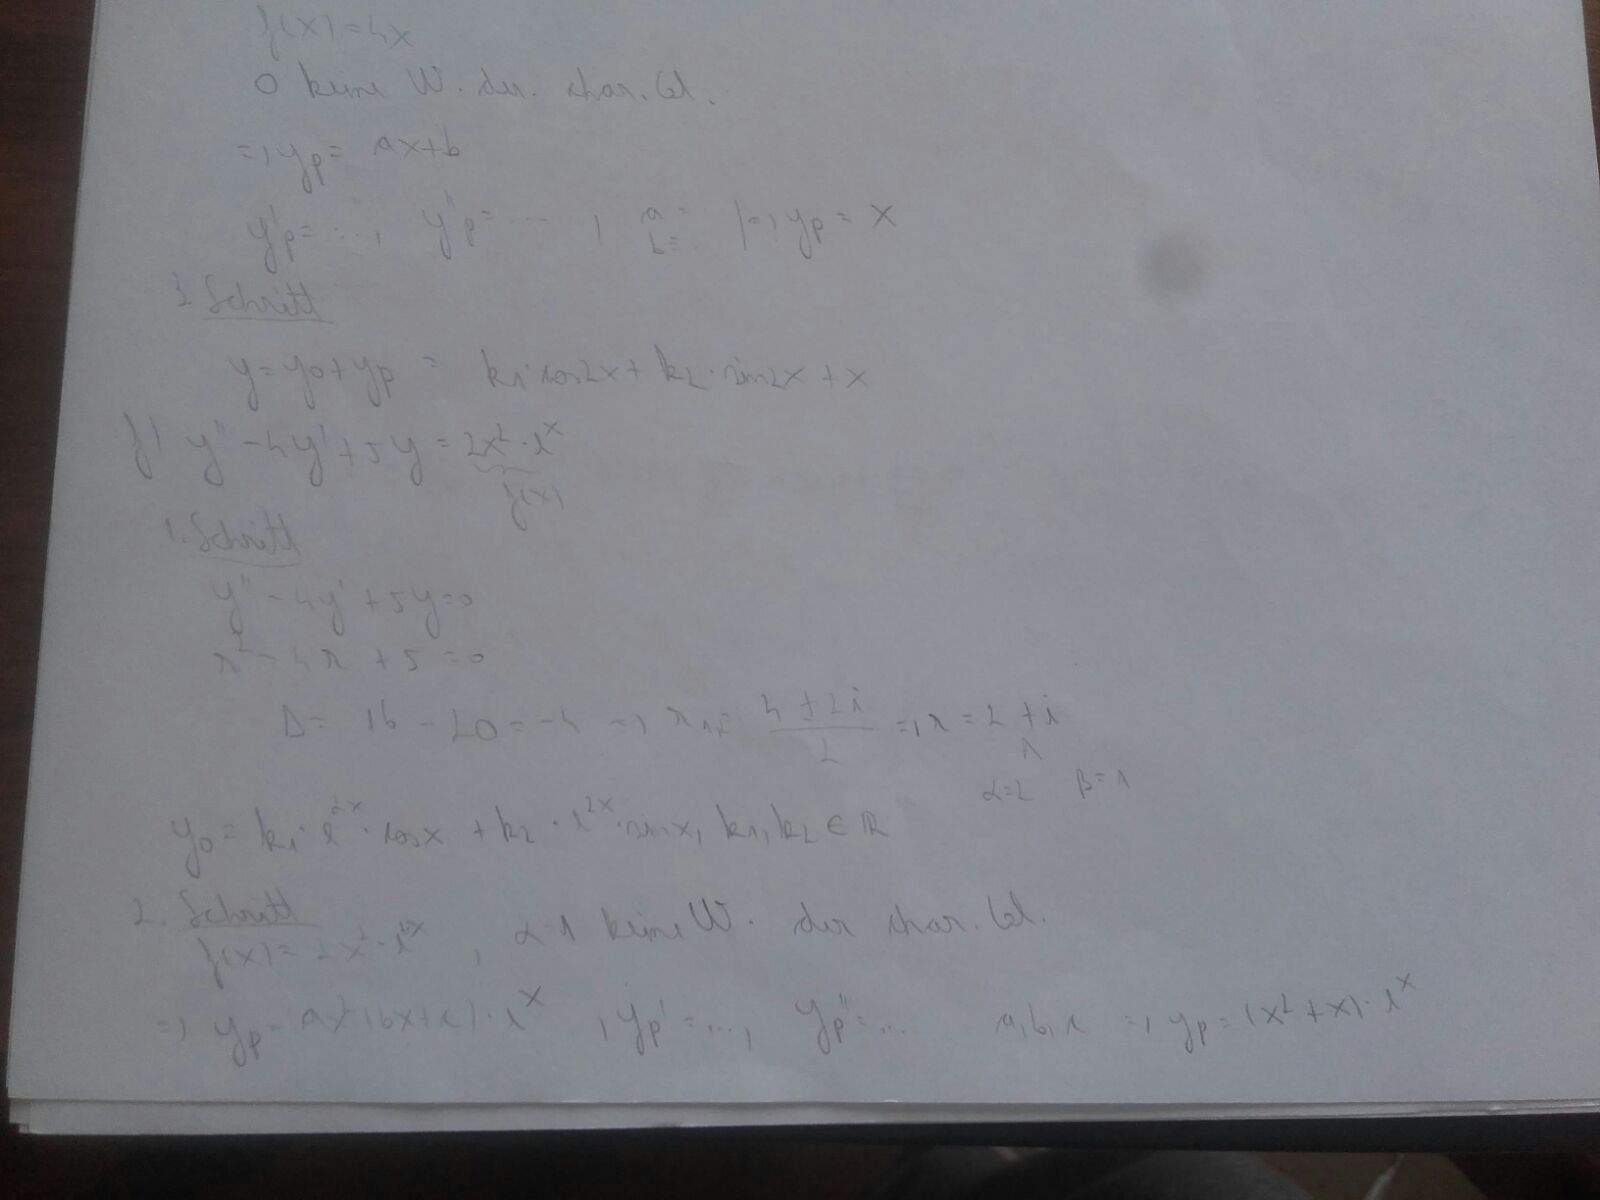 f(x)=4x
0 keine W. der. char. Gl.
=> yp= ax+b
y'p= ..., y''p= ... , a= b= |=> yp= x
3. Schritt
y=y0+yp = k1 cos2x + k2 · sin2x + x
f) y'' - 4y' + 5y = 2x² · e^x
f(x)
1. Schritt
y'' - 4y' + 5y=0
r² - 4r + 5 =0
Δ= 16 - 20 = -4 => r1,2= (4 ± 2i)/2 => r = 2 ± i
α=2 β=1
y0= k1 · e^2x · cosx + k2 · e^2x · sinx, k1, k2 ∈ ℝ
2. Schritt
f(x)= 2x² · e^x , α=1 keine W. der char. Gl.
=> yp= ax²+bx+c) · e^x , yp'=..., yp''=... a, b, c => yp= (x²+x) · e^x